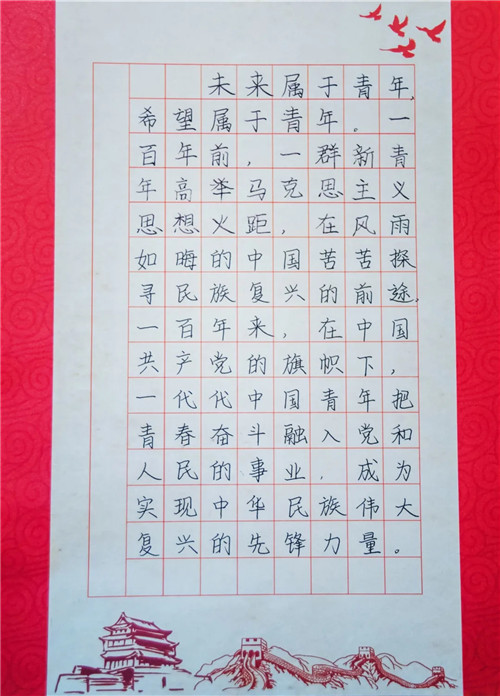 未来属于青年,
希望属于青年。一
百年前,一群新青
年高举马克思主义
思想火距,在风雨
如晦的中国苦苦探
寻民族复兴的前途,
一百年来,在中国
共产党的旗帜下,
一代代中国青年把
青春奋斗融入党和
人民的事业,成为
实现中华民族伟大
复兴的先锋力量。